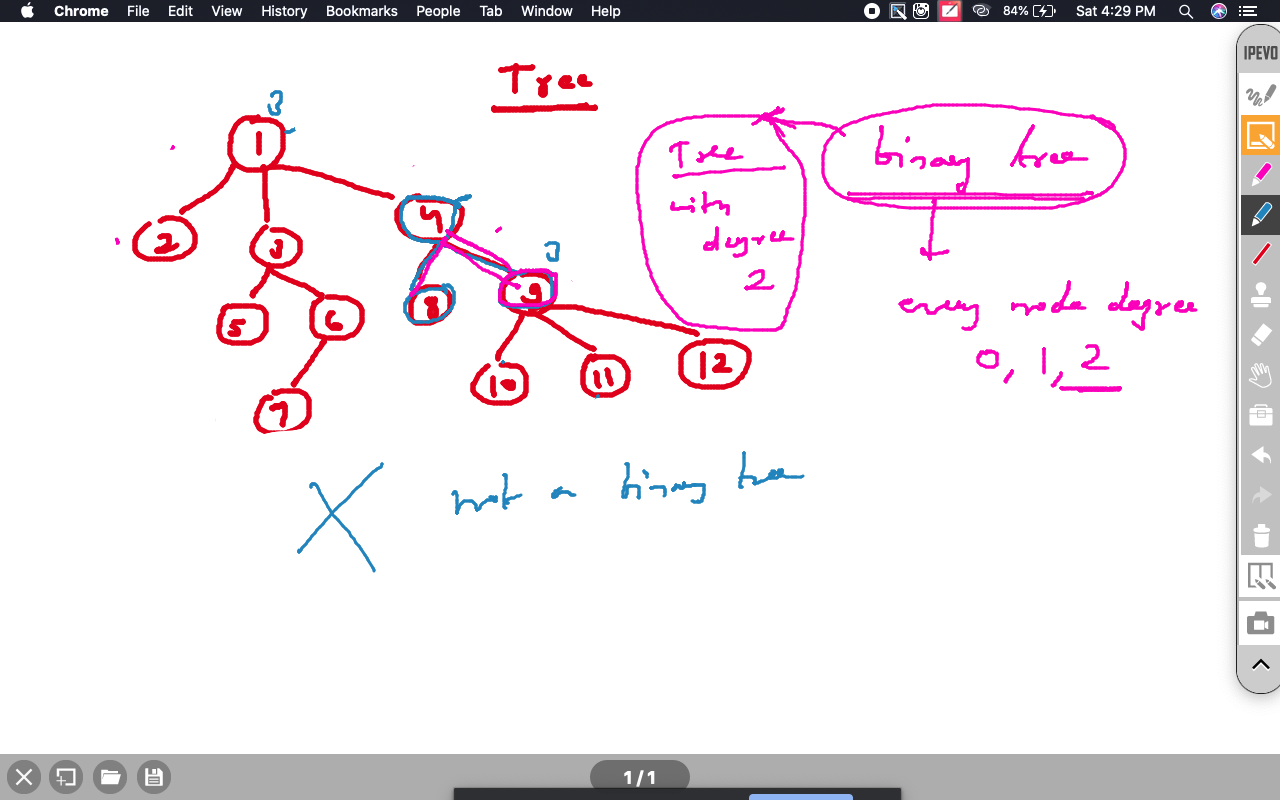 Chrome File Edit View History Bookmarks People Tab Window Help 84% Sat 4:29 PM
IPEVO
Tree
3
1
2
3
4
5
6
7
8
9
3
10
11
12
Tree
with
degree
2
binary tree
every node degree
0, 1, 2
not a binary tree
1/1